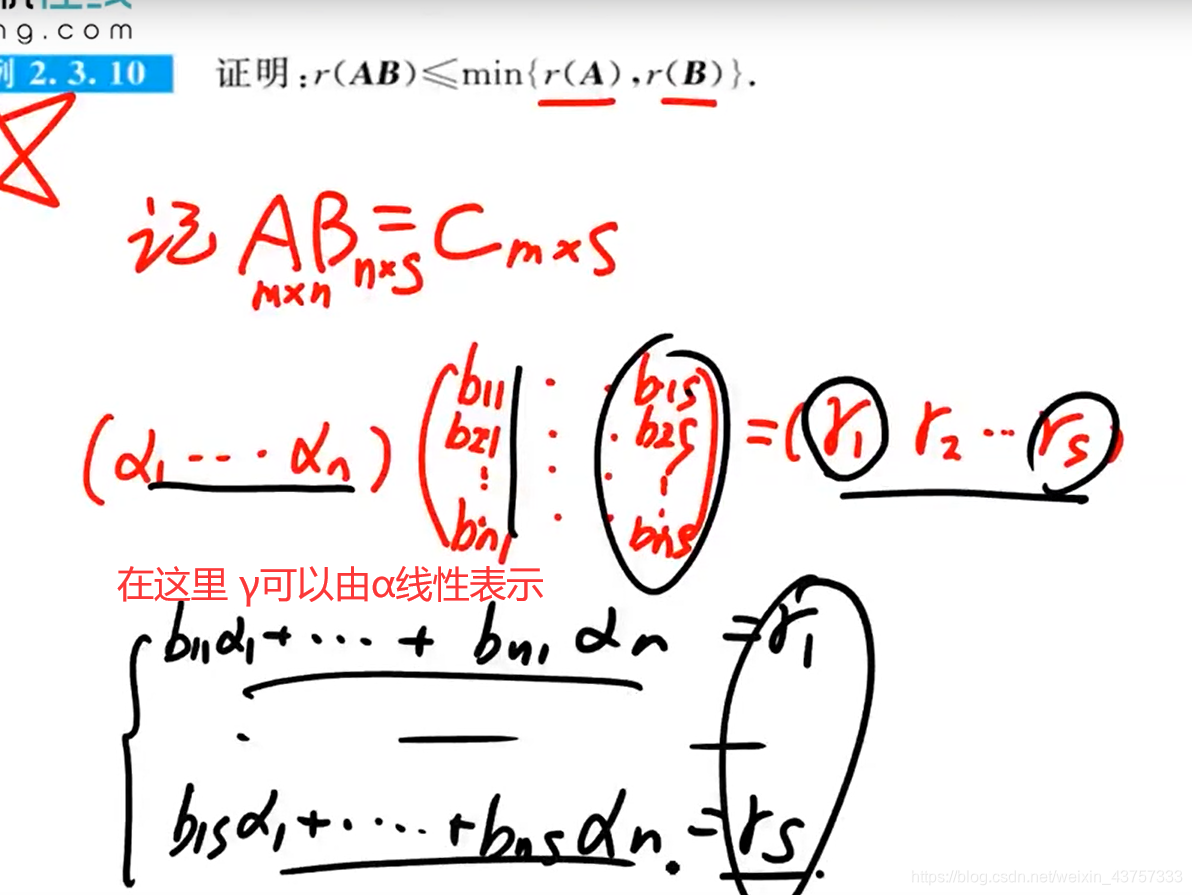 ng.com
例 2.3.10 证明:r(AB)≤min{r(A),r(B)}.
记 A B = C
m×n n×s m×s
(α1 ··· αn) (b11 ·· b1s = (γ1 γ2 ··· γs)
b21 ·· b2s
⋮ ·· ⋮
bn1 ·· bns)
在这里 γ可以由α线性表示
b11α1+···+ bn1 αn = γ1
· — —
b1sα1+····+bnsαn. = γs.
https://blog.csdn.net/weixin_43757333